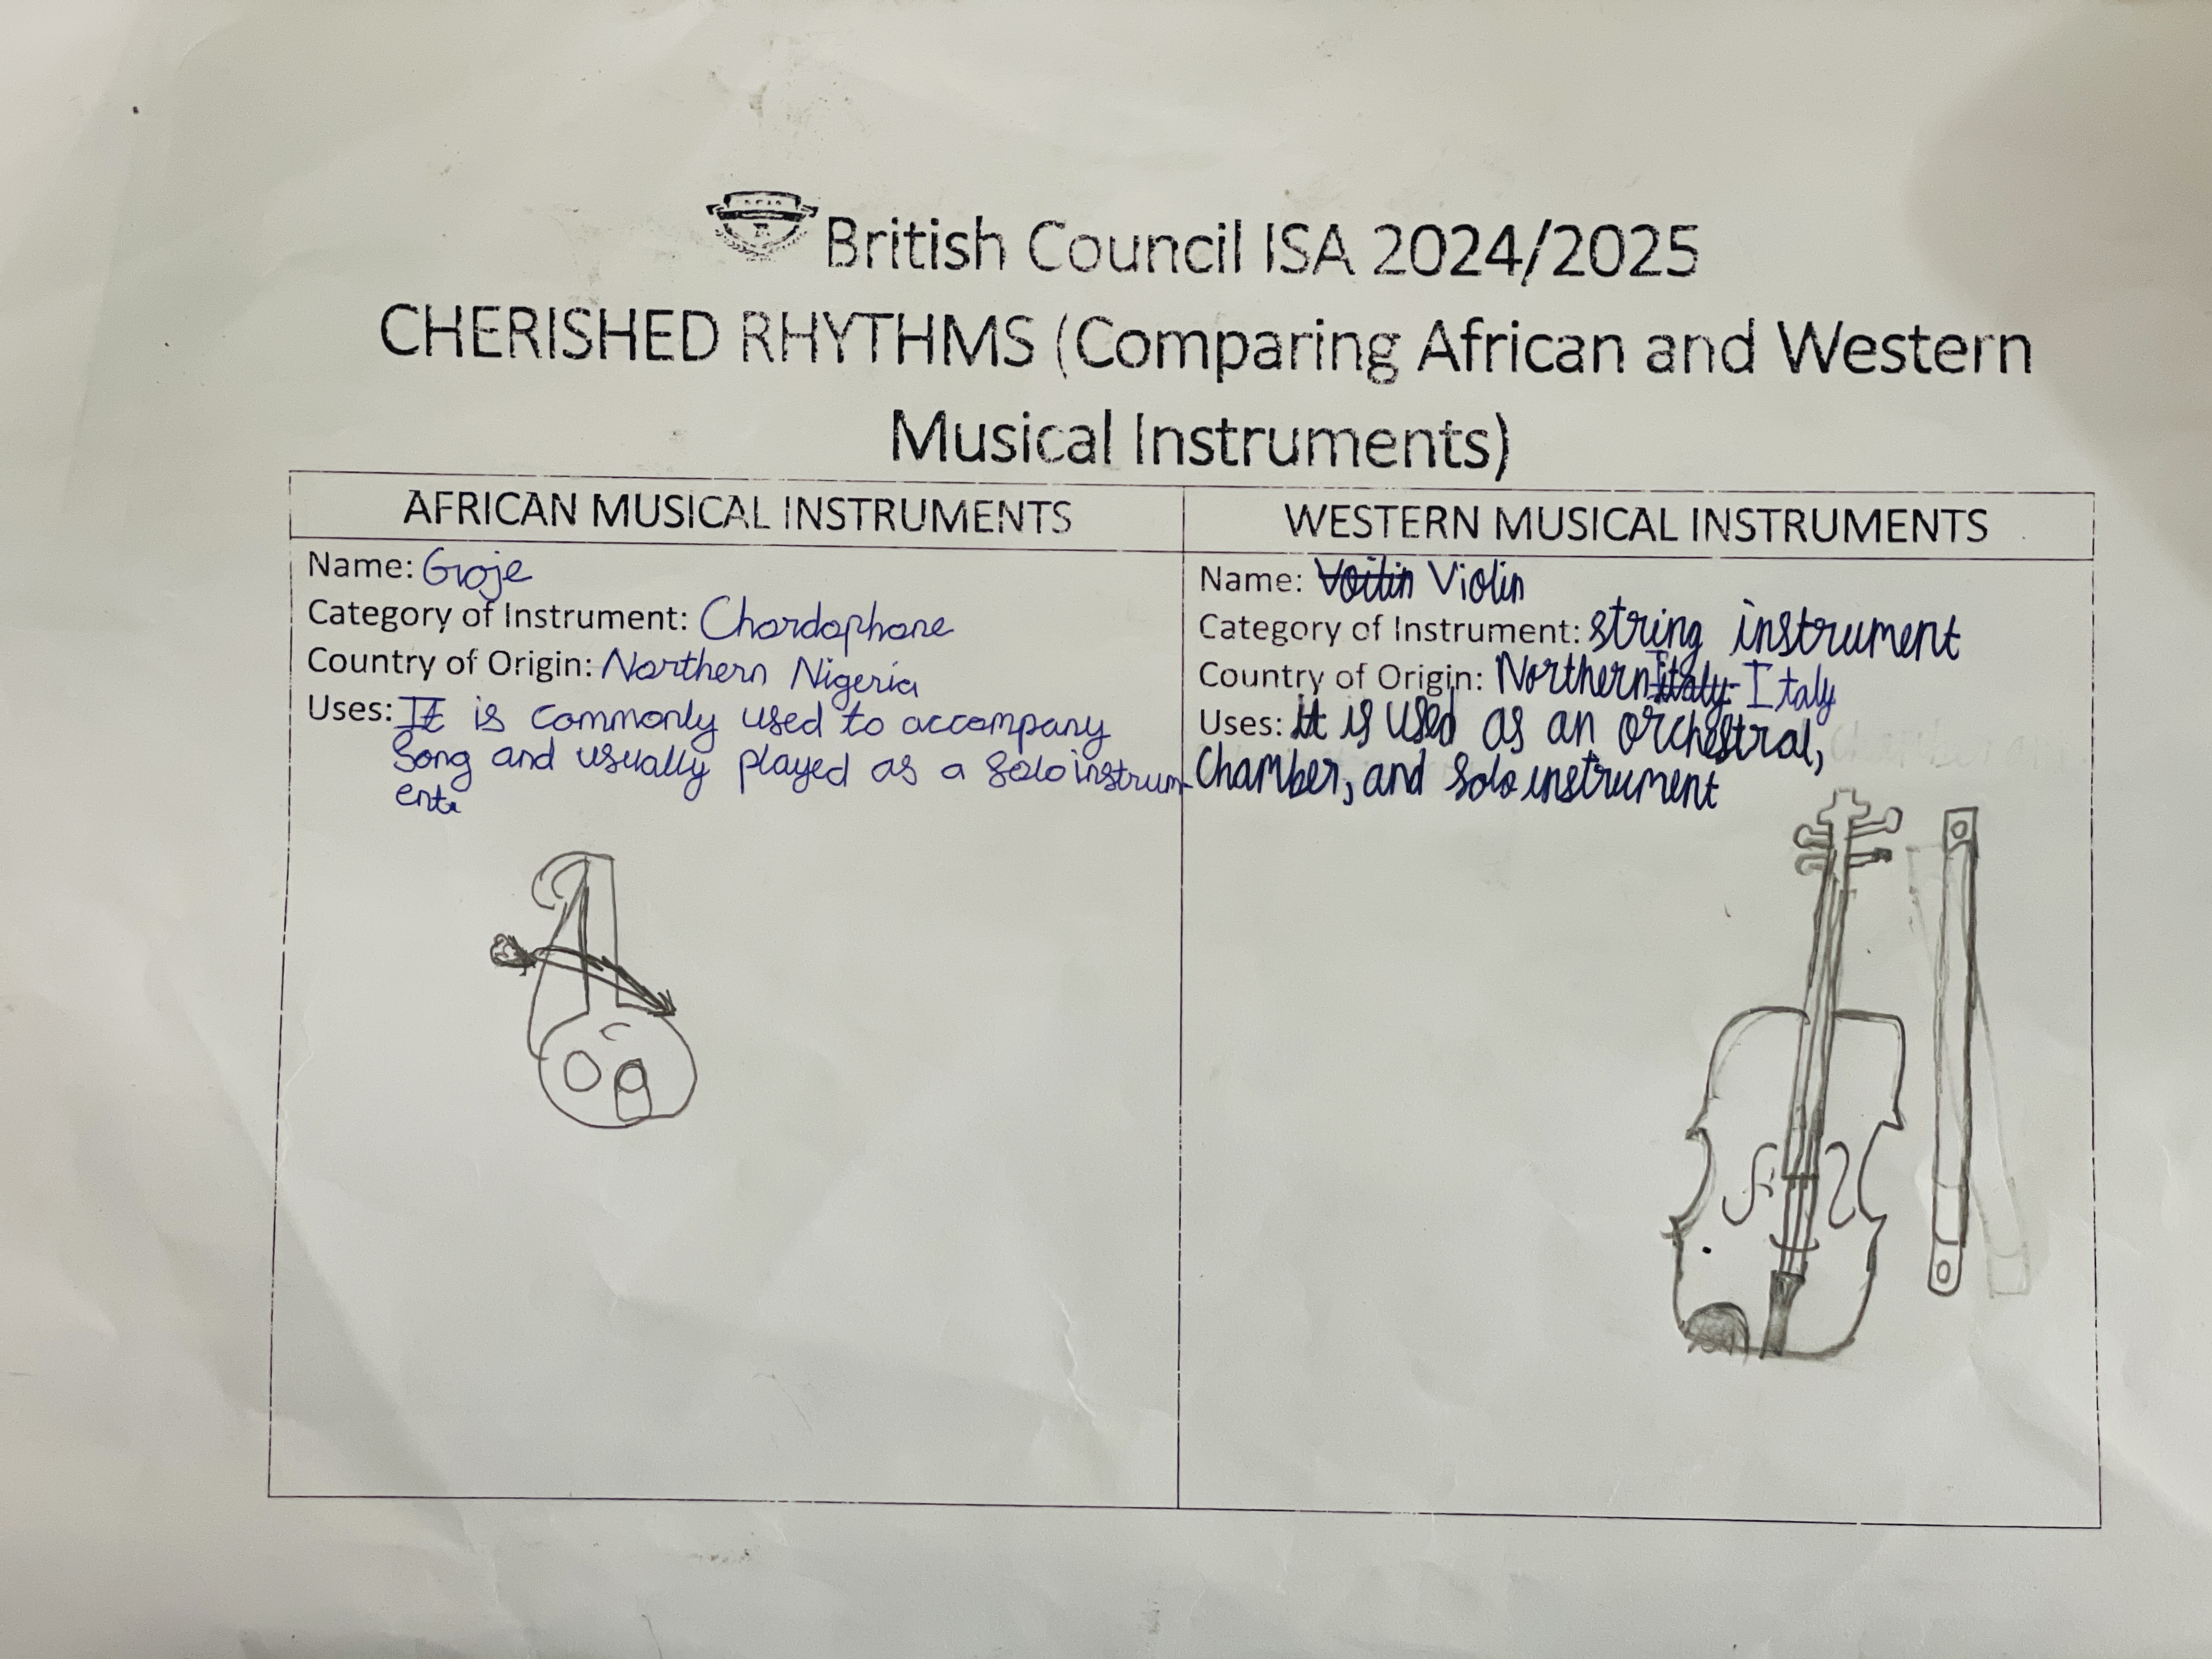 British Council ISA 2024/2025
CHERISHED RHYTHMS (Comparing African and Western
Musical Instruments)
AFRICAN MUSICAL INSTRUMENTS
Name: Goje
Category of Instrument: Chordophone
Country of Origin: Northern Nigeria
Uses: It is commonly used to accompany
Song and usually played as a solo instrum-
ent.
WESTERN MUSICAL INSTRUMENTS
Name: Voilin Violin
Category of Instrument: string instrument
Country of Origin: Northern Italy Italy
Uses: it is used as an orchestral,
Chamber, and solo instrument